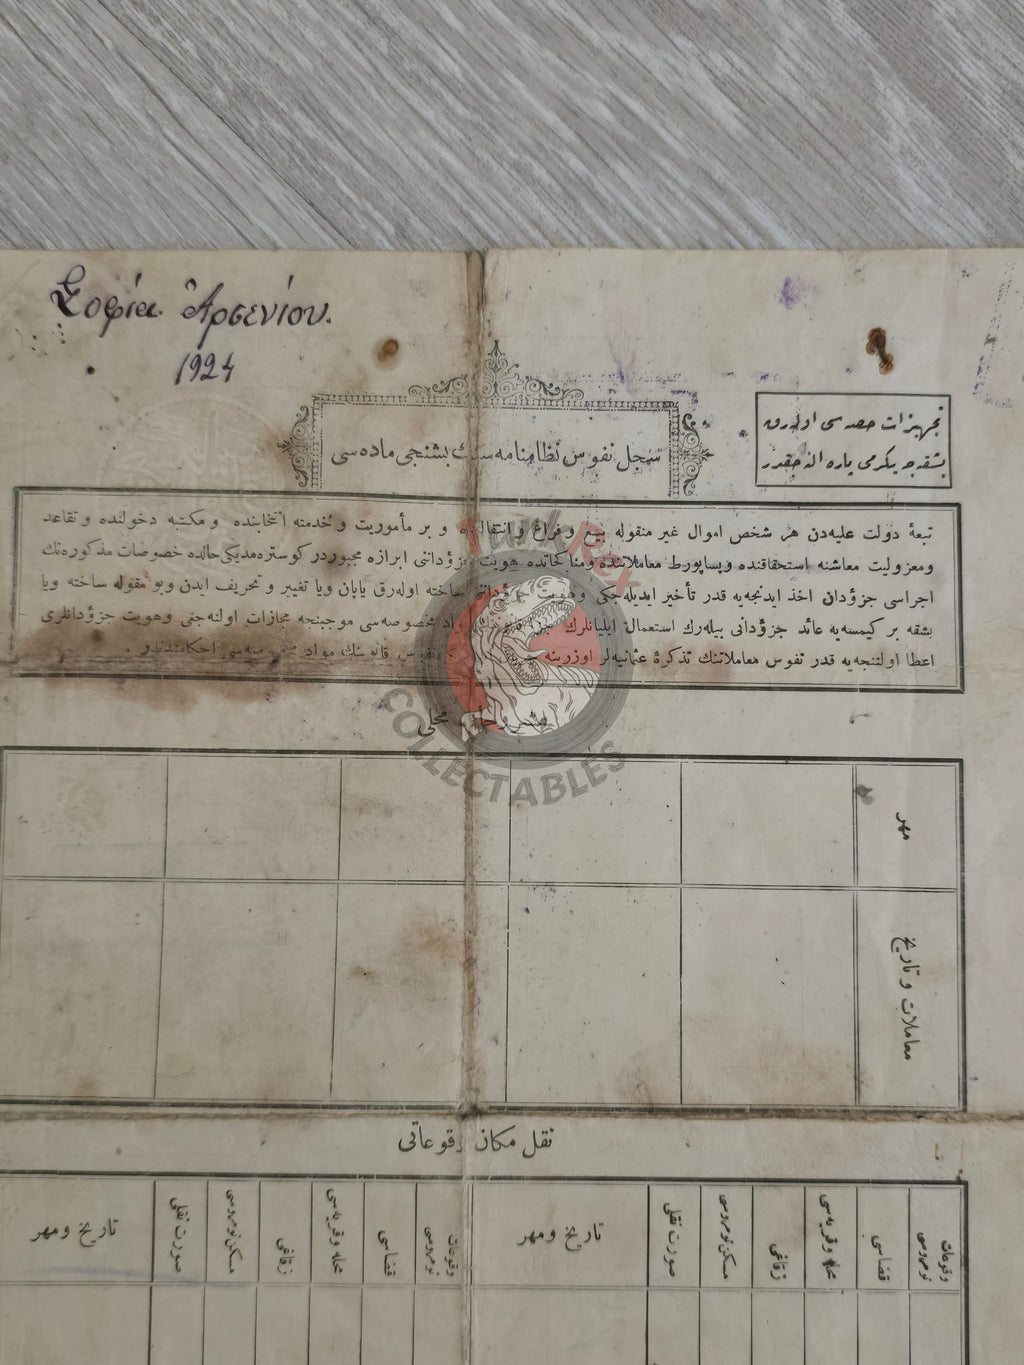 Σοφία Ἀρσενίου.
1924
تجهیزات حصه سی اوله رق
بشقه جه یکرمی پاره النه جقدر
سجل نفوس نظامنامه سنك بشنجی ماده سی
تبعهٔ دولت علیه دن هر شخص اموال غیر منقوله بیع و فراغ و انتقالنده و بر مأموریت و خدمته انتخابنده و مکتبه دخولنده و تقاعد
ومعزولیت معاشنه استحقاقنده وپساپورط معاملاتنده ومناکحاتده هویت جزؤداننی ابرازه مجبوردر کوستره مدیکی حالده خصوصات مذکوره نك
اجراسی جزؤدان اخذ ایدنجه یه قدر تأخیر ایدیله جکی وهویت جزؤداننی ساخته اوله رق یاپان ویا تغییر و تحریف ایدن وبو مقوله ساخته ویا
بشقه بر کیمسه یه عائد جزؤدانی بیله رك استعمال ایلیانلرك جزا قانوننك مواد مخصوصه سی موجبنجه مجازات اولنه جغی وهویت جزؤدانلری
اعطا اولننجه یه قدر نفوس معاملاتنك تذکرهٔ عثمانیه لر اوزرینه نفوس قانوننك مواد احکامندندر .
TurkRex
COLLECTABLES
مشروحات محلی
مهر
معاملات و تاریخ
نقل مکان وقوعاتی
وقوعات نومروسی
قضاسی
محله وقریه سی
زقاغی
مسکن نومروسی
صورت نقلی
تاریخ ومهر
وقوعات نومروسی
قضاسی
محله وقریه سی
زقاغی
مسکن نومروسی
صورت نقلی
تاریخ ومهر